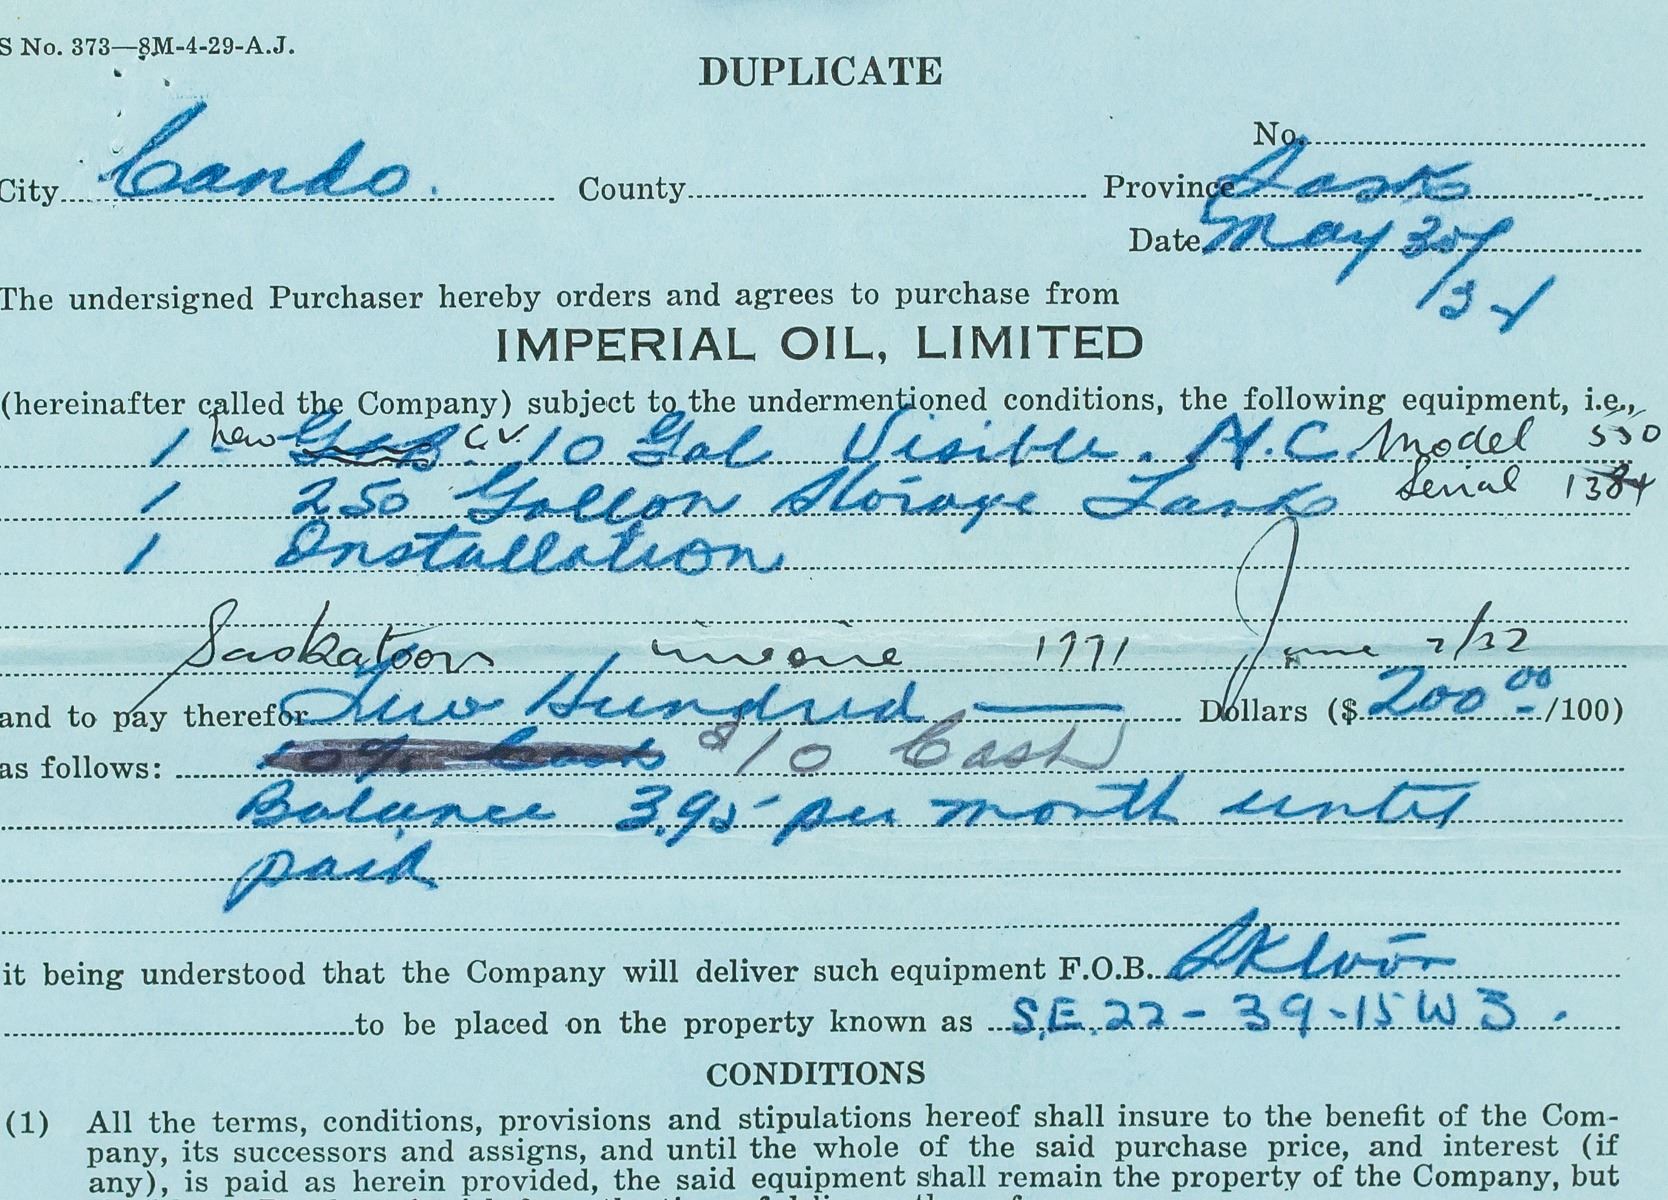 S No. 373—8M-4-29-A.J.
DUPLICATE
No.
City Cando. County Province Sask
Date May 30
The undersigned Purchaser hereby orders and agrees to purchase from
IMPERIAL OIL, LIMITED
(hereinafter called the Company) subject to the undermentioned conditions, the following equipment, i.e.,
1 new C.V. 10 Gal Visible. H.C. Model 550
1 250 Gallon Storage Tank Serial 1384
1 Installation
Saskatoon invoice 1771 June 7/32
and to pay therefor Two Hundred Dollars ($ 200 00/100)
as follows: 10% Cash $10 Cash
Balance 3.95 per month until
paid
it being understood that the Company will deliver such equipment F.O.B.
to be placed on the property known as S.E. 22 - 39 - 15 W 3.
CONDITIONS
(1) All the terms, conditions, provisions and stipulations hereof shall insure to the benefit of the Com-
pany, its successors and assigns, and until the whole of the said purchase price, and interest (if
any), is paid as herein provided, the said equipment shall remain the property of the Company, but